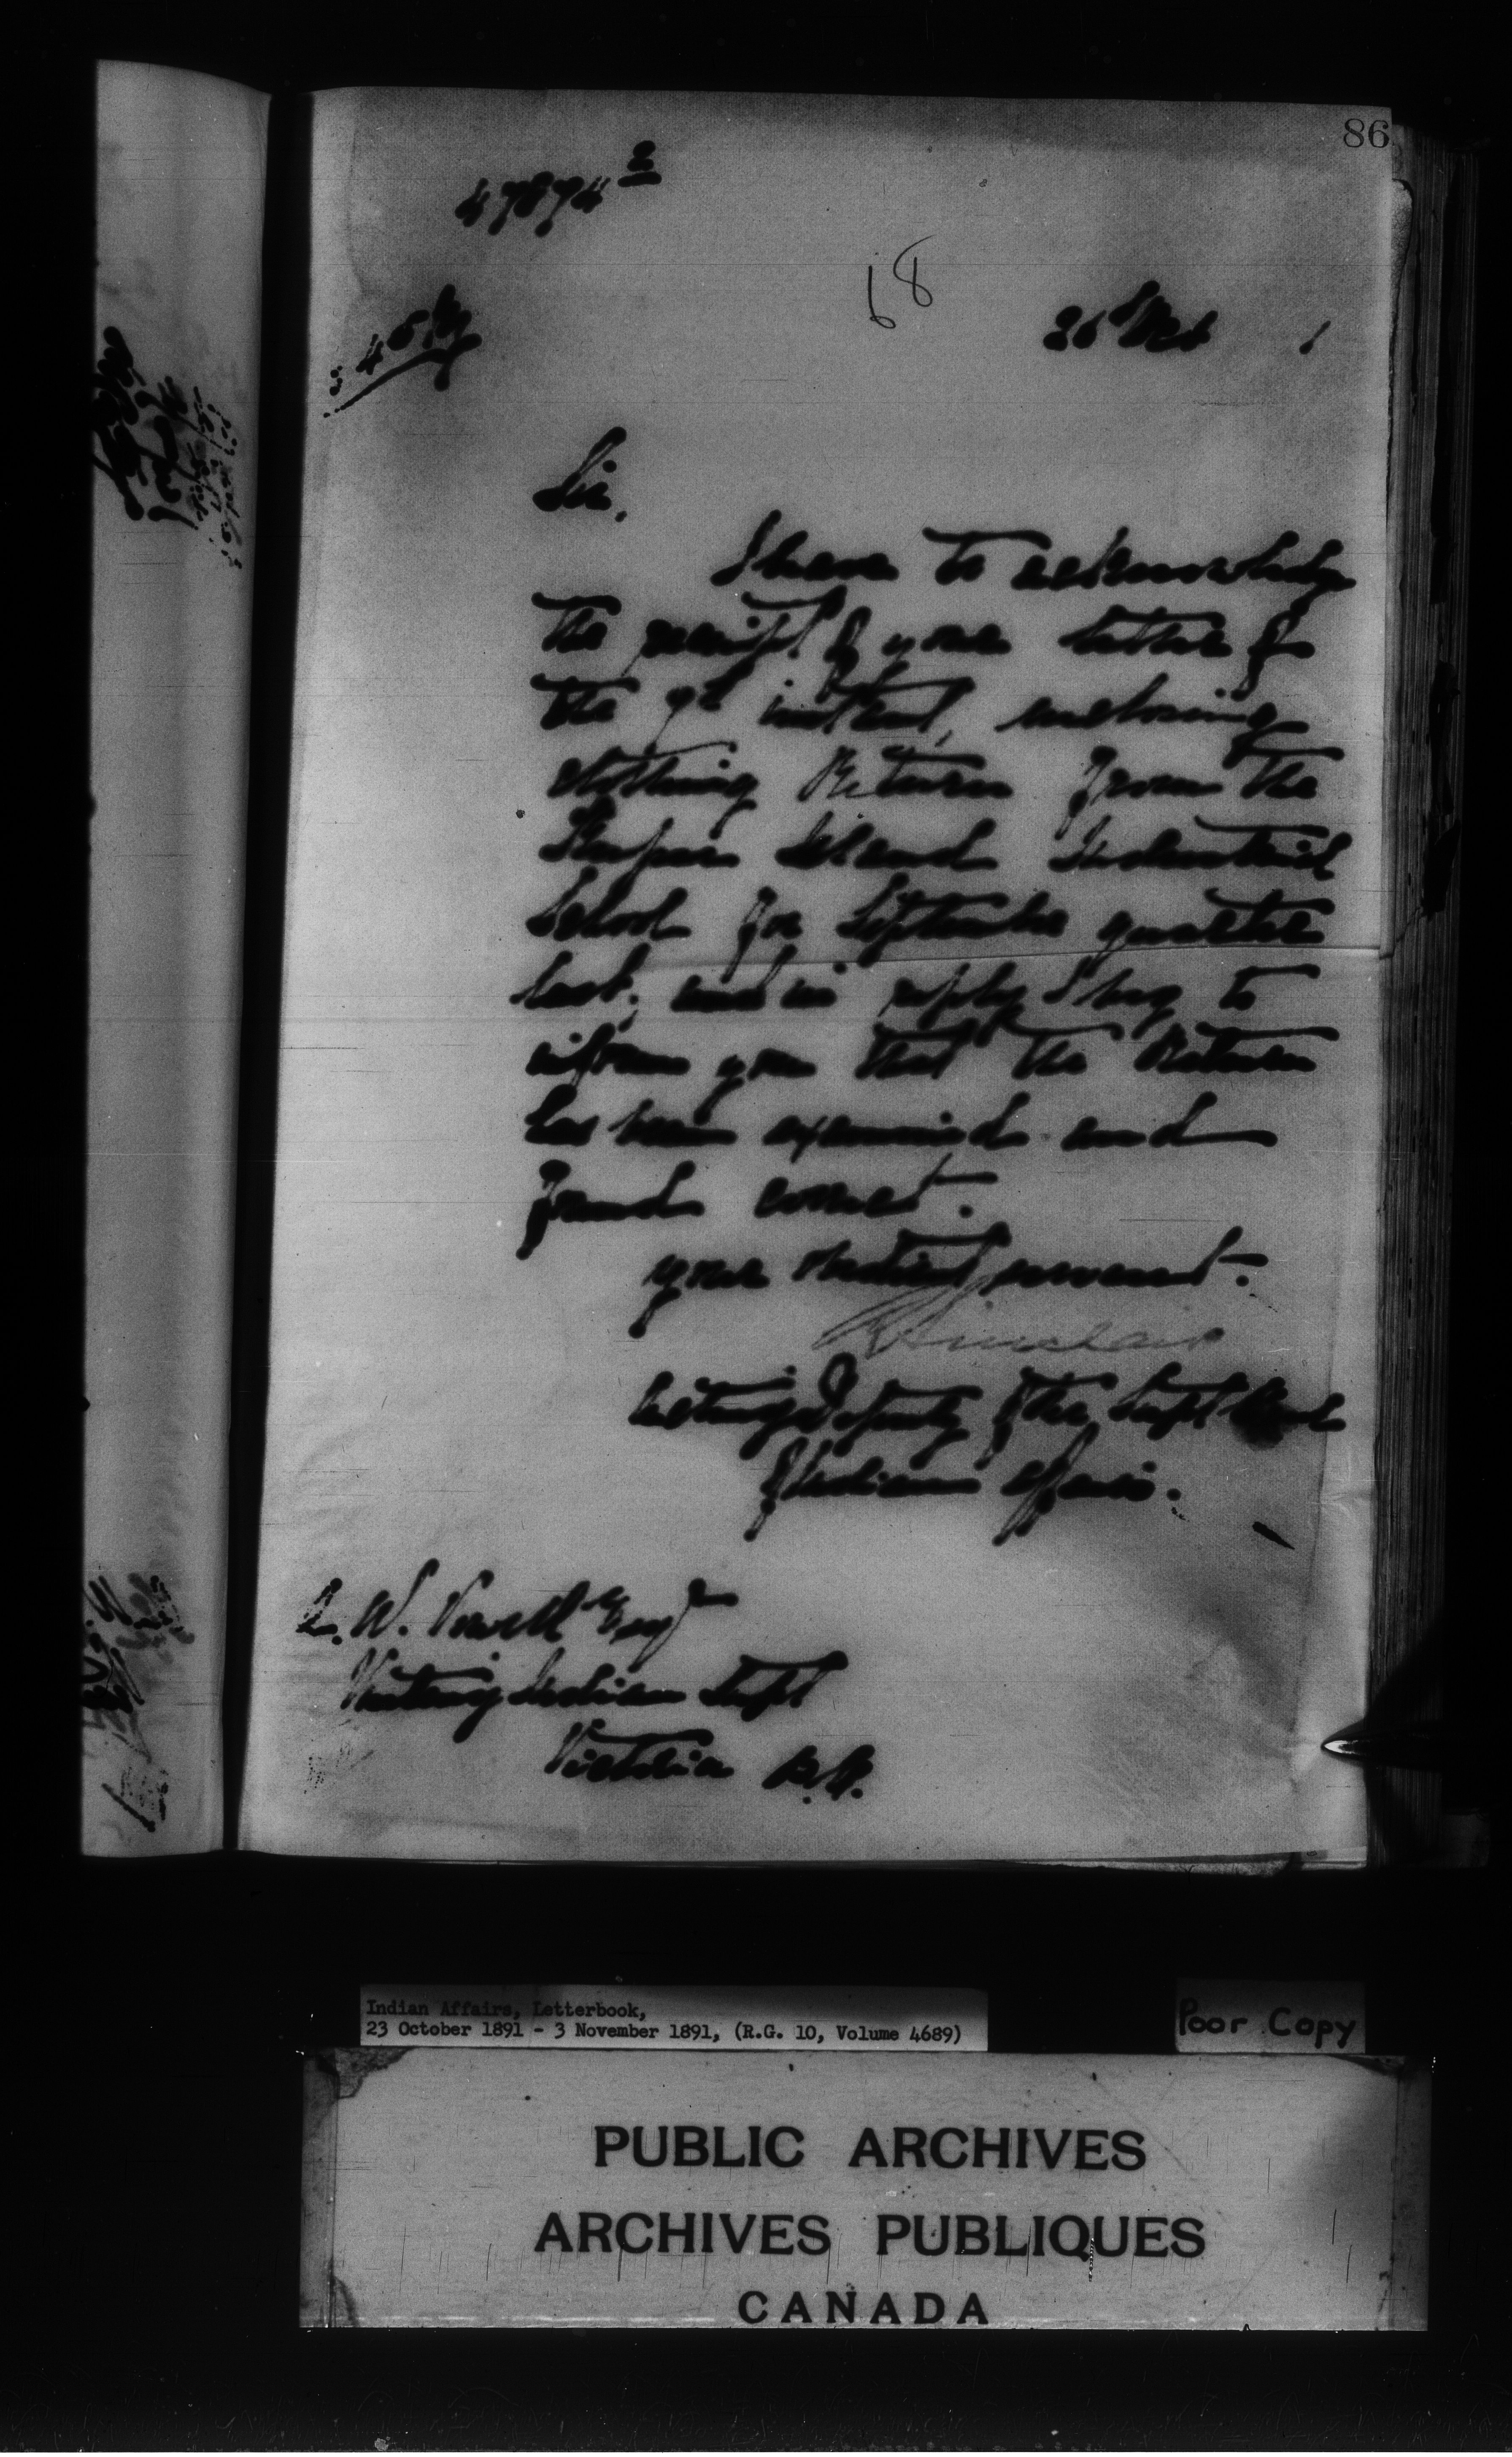 86
47874 2
68
26 Oct 1
Sir,
I have to acknowledge
the receipt of your letter of
the 9th instant, enclosing
clothing Return from the
Kuper Island Industrial
School for September quarter
last, and in reply I beg to
inform you that the Return
has been examined and
found correct.
your obedient servant.
R Sinclair
Acting Deputy of the Supt Genl
of Indian Affairs.
I. W. Powell Esq
Visiting Indian Supt
Victoria B.C.
Indian Affairs, Letterbook,
23 October 1891 - 3 November 1891, (R.G. 10, Volume 4689)
Poor Copy
PUBLIC ARCHIVES
ARCHIVES PUBLIQUES
CANADA